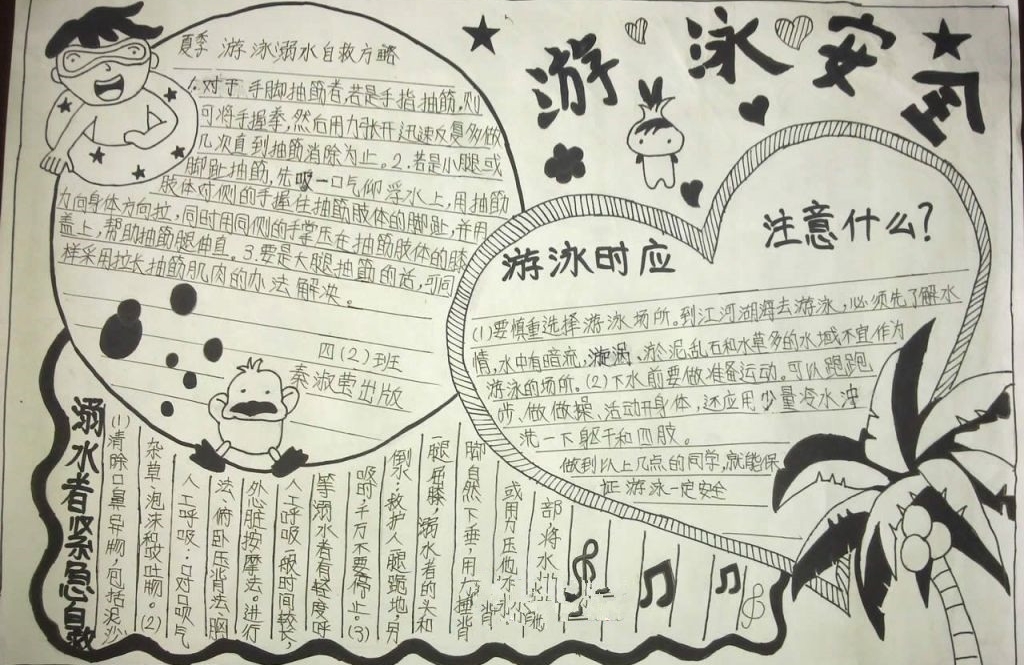 游泳安全
夏季游泳溺水自救方略
1.对于手脚抽筋者,若是手指抽筋,则
可将手握拳,然后用力张开,迅速反复多做
几次直到抽筋消除为止。2.若是小腿或
脚趾抽筋,先吸一口气仰浮水上,用抽筋
肢体对侧的手握住抽筋肢体的脚趾,并用
力向身体方向拉,同时用同侧的手掌压在抽筋肢体的膝
盖上,帮助抽筋腿伸直。3.要是大腿抽筋的话,可同
样采用拉长抽筋肌肉的办法解决。
四(2)班
秦淑萤出版
游泳时应
注意什么?
(1)要慎重选择游泳场所。到江河湖海去游泳,必须先了解水
情,水中有暗流,漩涡、淤泥、乱石和水草多的水域不宜作为
游泳的场所。(2)下水前要做准备运动。可以跑跑
步、做做操,活动开身体,还应用少量冷水冲
洗一下躯干和四肢。
做到以上几点的同学,就能保
证游泳一定安全
溺水者紧急自救
(1)清除口鼻异物,包括泥沙
杂草、泡沫和呕吐物。(2)
人工呼吸:口对口吹气
法、俯卧压背法、胸
外心脏按摩法。进行
人工呼吸一般时间较长,
等溺水者有轻度呼
吸时,千万不要停止。(3)
倒水:救护人一腿跪地,另
腿屈膝,溺水者的头和
脚自然下垂,用力撞背
或用力压他
部,将水